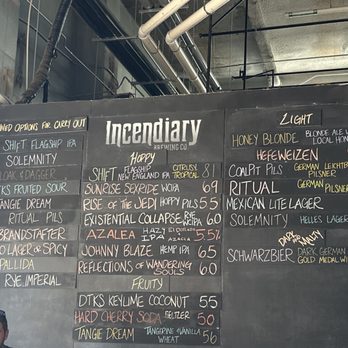 NED OPTIONS FOR CARRY OUT
SHIFT FLAGSHIP IPA
SOLEMNITY
LOAK & DAGGER
TKS FRUITED SOUR
TANGIE DREAM
RITUAL PILS
BRANDSTAFTER
O LAGER OF SPICY
PALLIDA
RYE IMPERIAL
Incendiary
BREWING CO
HOPPY
SHIFT FLAGSHIP NEW ENGLAND IPA CITRUSY TROPICAL 81
SUNRISE SEXRIDE WCIPA 69
RISE OF THE JEDI HOPPY PILS 55
EXISTENTIAL COLLAPSE RYE WCIPA 60
AZALEA HAZY IPA AZACCA 5.5%
JOHNNY BLAZE HEMP IPA 65
REFLECTIONS OF WANDERING SOULS 60
FRUITY
DTKS KEYLIME COCONUT 55
HARD CHERRY SODA SELTZER 50
TANGIE DREAM TANGERINE & VANILLA WHEAT 56
LIGHT
HONEY BLONDE BLONDE ALE W/ LOCAL HON
HEFEWEIZEN
COALPIT PILS GERMAN LEICHTER PILSNER
RITUAL GERMAN PILSNER
MEXICAN LITE LAGER
SOLEMNITY HELLES LAGER
DARK AND MALTY
SCHWARZBIER DARK GERMAN GOLD MEDAL WI